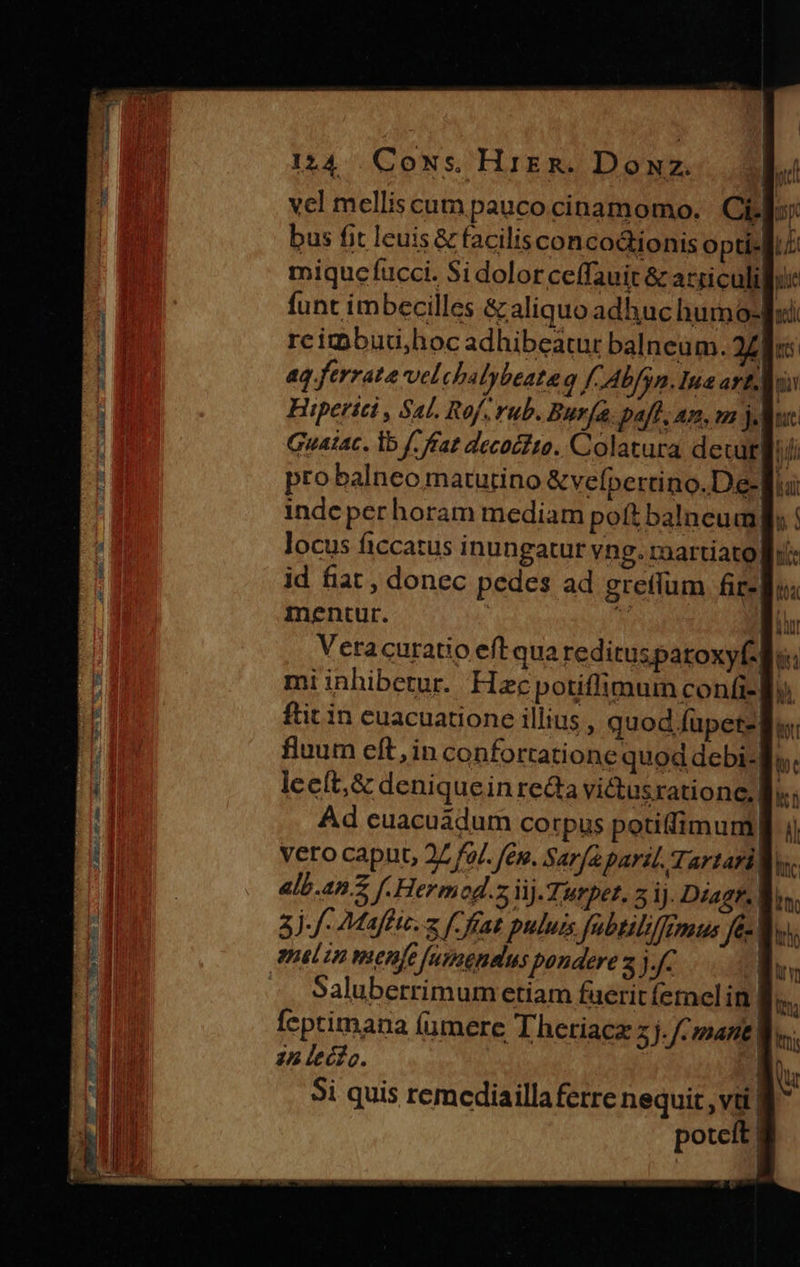 124 Cons. Hier. Donz.
vel mellis cum pauco cinamomo. Ci-
bus sit leuis & facilis concoctionis opti-
mique succi. Si dolor cessauit & articuli
sunt imbecilles & aliquo adhuc humo-
re imbuti, hoc adhibeatur balneum. ℞
aq. ferratæ vel chalybeatæ q s. Absyn. Iuæ art.
Hiperici, Sal. Ros. rub. Bursæ. past. an. m j.
Guaiac. ℔ s. fiat decoctio. Colatura detur
pro balneo matutino & vespertino. De-
inde per horam mediam post balneum
locus siccatus inungatur vng. martiato
id fiat, donec pedes ad gressum fir-
mentur.
Vera curatio est qua reditus paroxys-
mi inhibetur. Hæc potissimum consi-
stit in euacuatione illius, quod super-
fluum est, in confortatione quod debi-
le est, & denique in recta victus ratione.
Ad euacuādum corpus potissimum
vero caput, ℞ fol. sen. Sarsæ paril. Tartari
alb. an. ℥ s. Hermod. ʒ iij. Turpet. ʒ ij. Diagr.
ʒ j. s. Mastic. ʒ s. fiat puluis subtilissimus se-
mel in mense sumendus pondere ʒ j. s.
Saluberrimum etiam fuerit semel in
septimana sumere Theriacæ ʒ j. s. mane
in lecto.
Si quis remedia illa ferre nequit, vti
potest